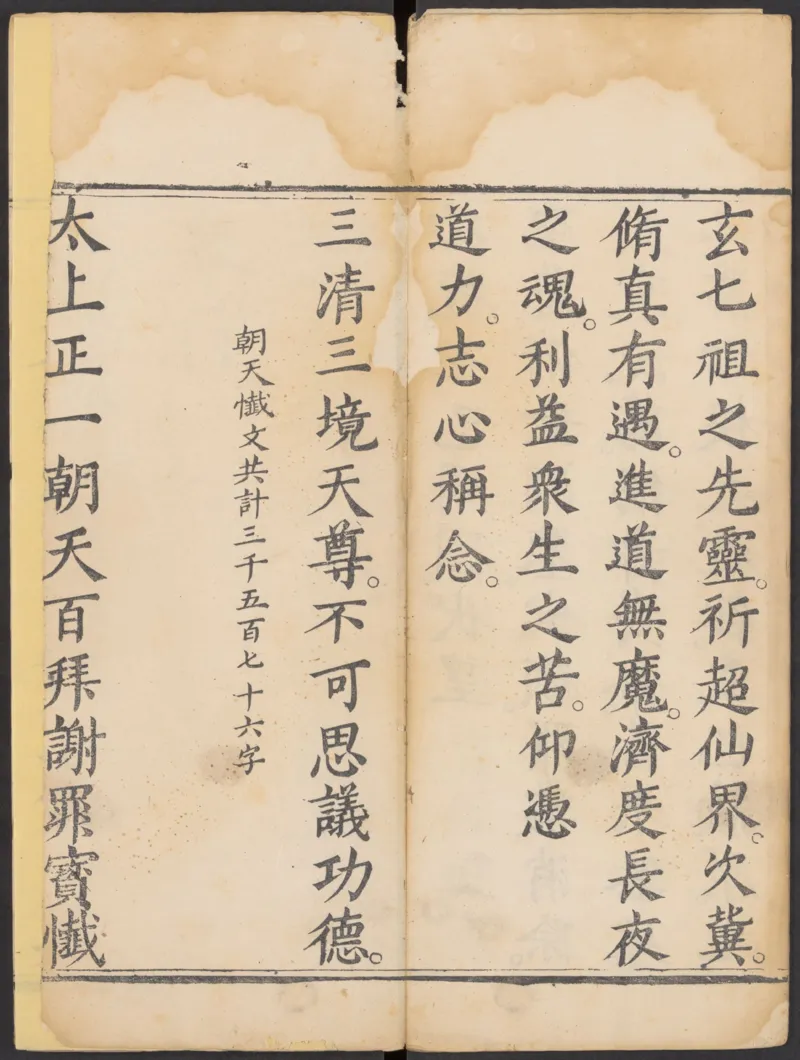 玄七祖之先靈。祈超仙界。次冀。
脩真有遇。進道無魔。濟度長夜
之魂。利益衆生之苦。仰憑
道力。志心稱念。
三清三境天尊。不可思議功德。
朝天懺文共計三千五百七十六字
太上正一朝天百拜謝罪寳懺